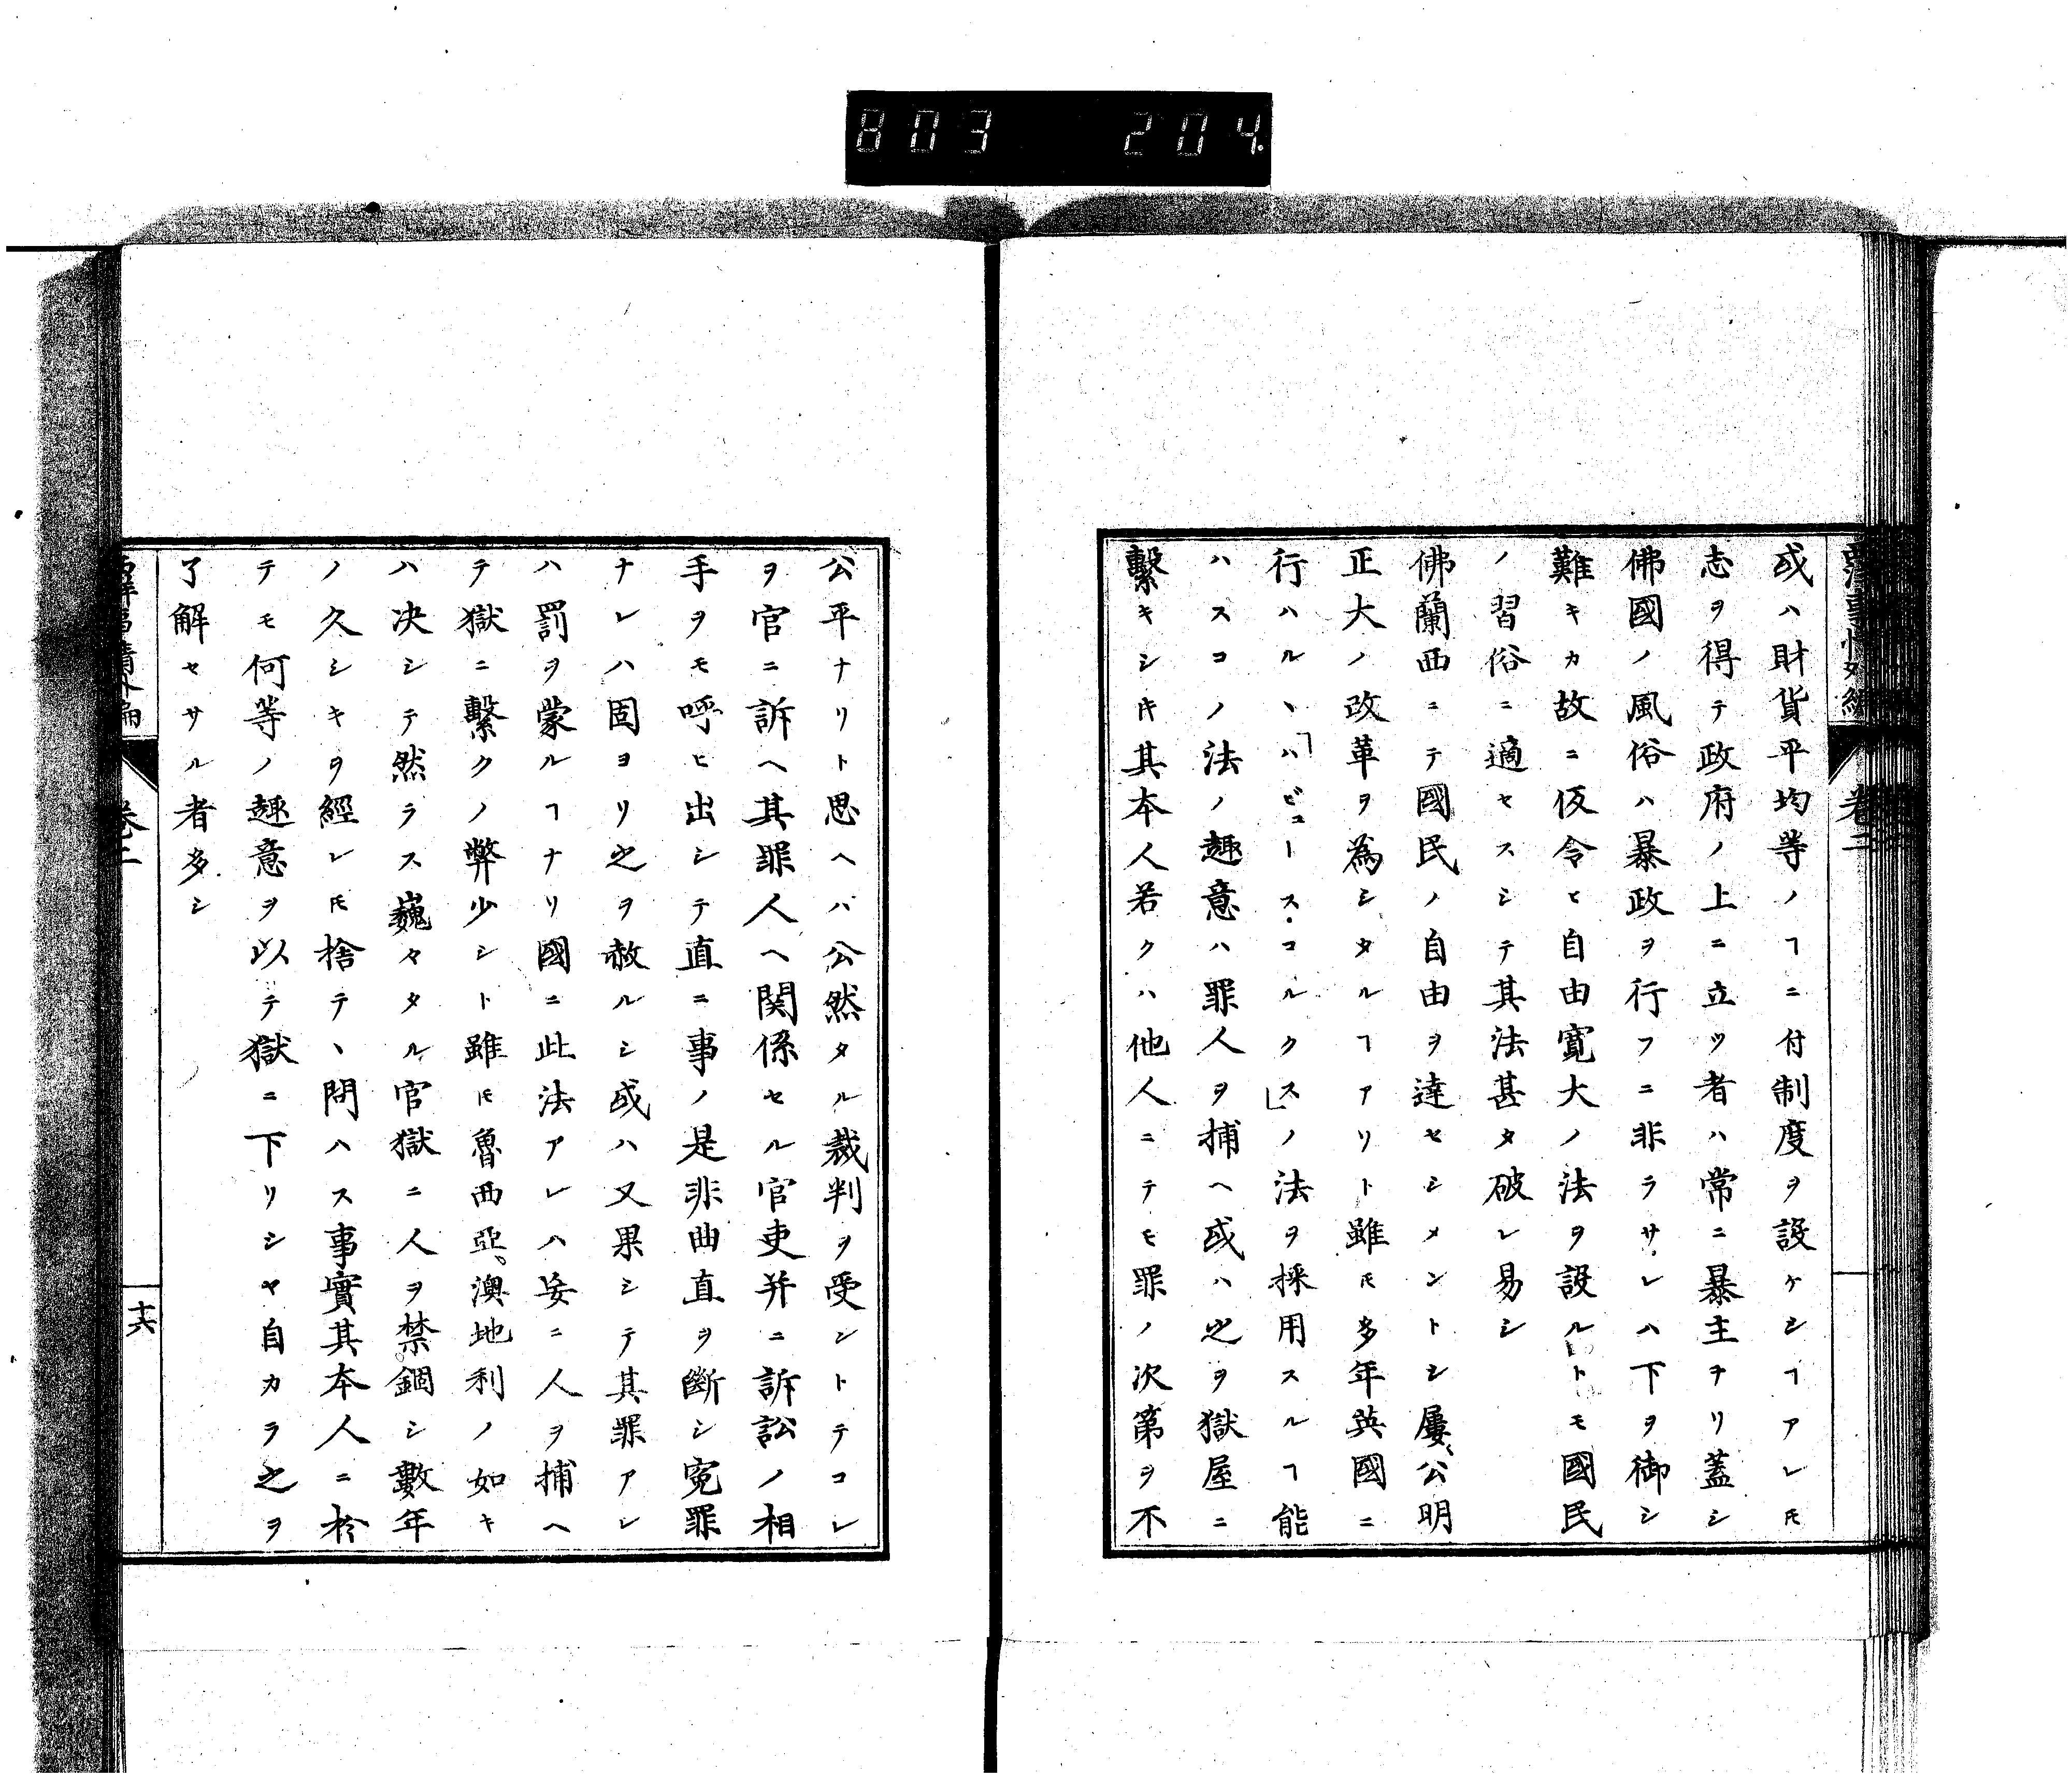 803 204.
或ハ財貨平均等ノヿニ付制度ヲ設ケシヿアレ𪜈
志ヲ得テ政府ノ上ニ立ツ者ハ常ニ暴主ナリ蓋シ
佛國ノ風俗ハ暴政ヲ行フニ非ラサレハ下ヲ御シ
難キカ故ニ仮令ヒ自由寛大ノ法ヲ設ルトモ國民
ノ習俗ニ適セスシテ其法甚タ破レ易シ
佛蘭西ニテ國民ノ自由ヲ達セシメントシ屢〻公明
正大ノ改革ヲ為シタルヿアリト雖𪜈多年英國ニ
行ハルヽ「ハビユース・コルクス」ノ法ヲ採用スルヿ能
ハスコノ法ノ趣意ハ罪人ヲ捕ヘ或ハ之ヲ獄屋ニ
繫キシ𪜈其本人若クハ他人ニテモ罪ノ次第ヲ不
公平ナリト思ヘバ公然タル裁判ヲ受ントテコレ
ヲ官ニ訴ヘ其罪人ヘ関係セル官吏并ニ訴訟ノ相
手ヲモ呼ヒ出シテ直ニ事ノ是非曲直ヲ斷シ寃罪
ナレハ固ヨリ之ヲ赦ルシ或ハ又果シテ其罪アレ
ハ罰ヲ蒙ルヿナリ國ニ此法アレハ妄ニ人ヲ捕ヘ
テ獄ニ繫クノ弊少シト雖𪜈魯西亞。澳地利ノ如キ
ハ決シテ然ラス巍々タル官獄ニ人ヲ禁錮シ數年
ノ久シキヲ經レ𪜈捨テヽ問ハス事實其本人ニ於
テモ何等ノ趣意ヲ以テ獄ニ下リシヤ自カラ之ヲ
了解セサル者多シ
卷二
十六